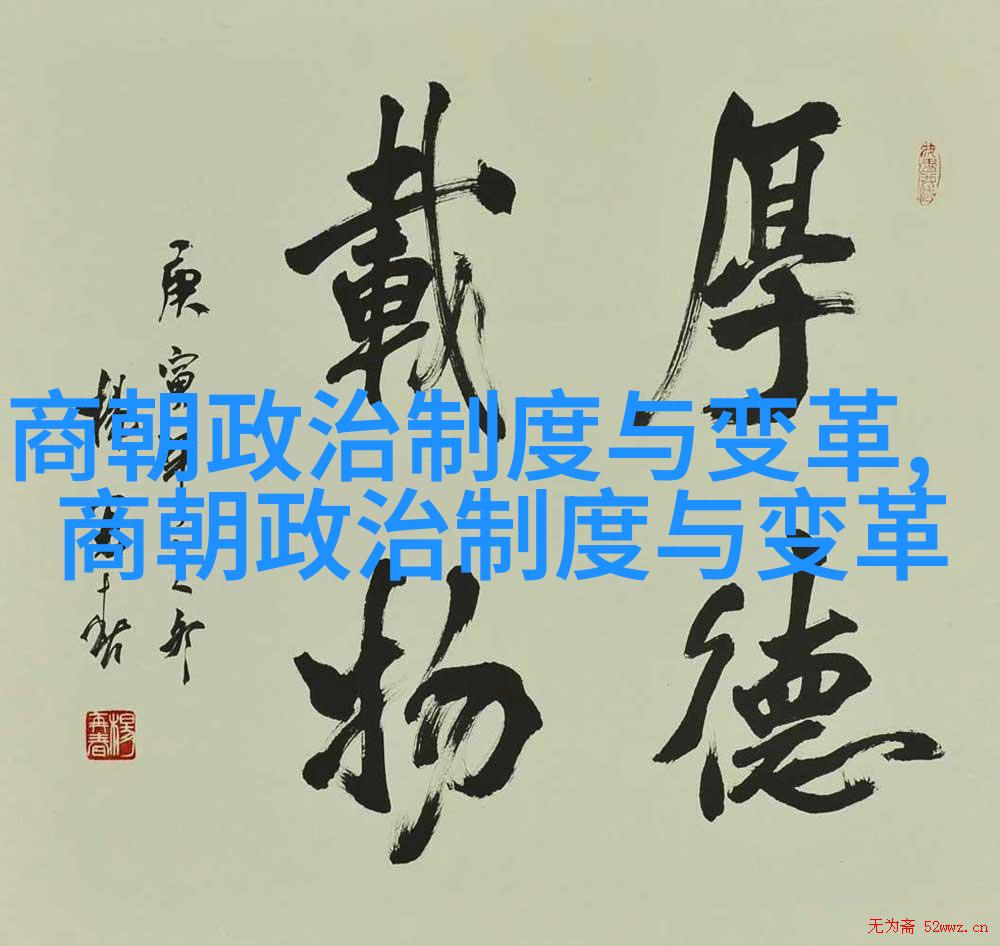 厚德
載物
庚寅
楊再春
商朝政治制度与变革,
商朝政治制度与变革
楊再春
无为斋 52wwz.cn